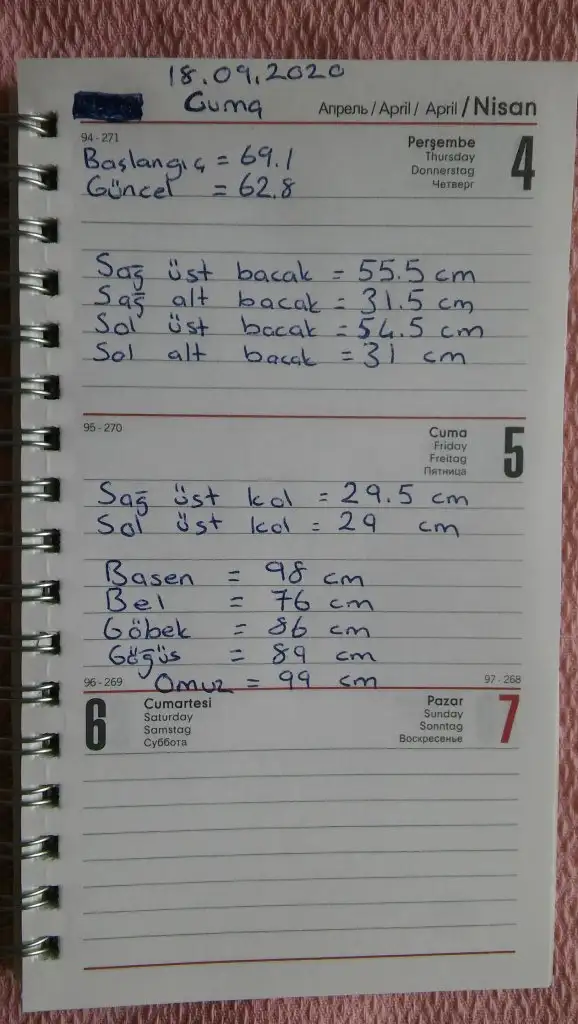 18.09.2020
Cuma
Апрель / April / April / Nisan
94 - 271
Perşembe
Thursday
Donnerstag
Четверг
4
Başlangıç = 69.1
Güncel = 62.8
Sağ üst bacak = 55.5 cm
Sağ alt bacak = 31.5 cm
Sol üst bacak = 54.5 cm
Sol alt bacak = 31 cm
95 - 270
Cuma
Friday
Freitag
Пятница
5
Sağ üst kol = 29.5 cm
Sol üst kol = 29 cm
Basen = 98 cm
Bel = 76 cm
Göbek = 86 cm
Göğüs = 89 cm
Omuz = 99 cm
96 - 269
97 - 268
6
Cumartesi
Saturday
Samstag
Суббота
Pazar
Sunday
Sonntag
Воскресенье
7